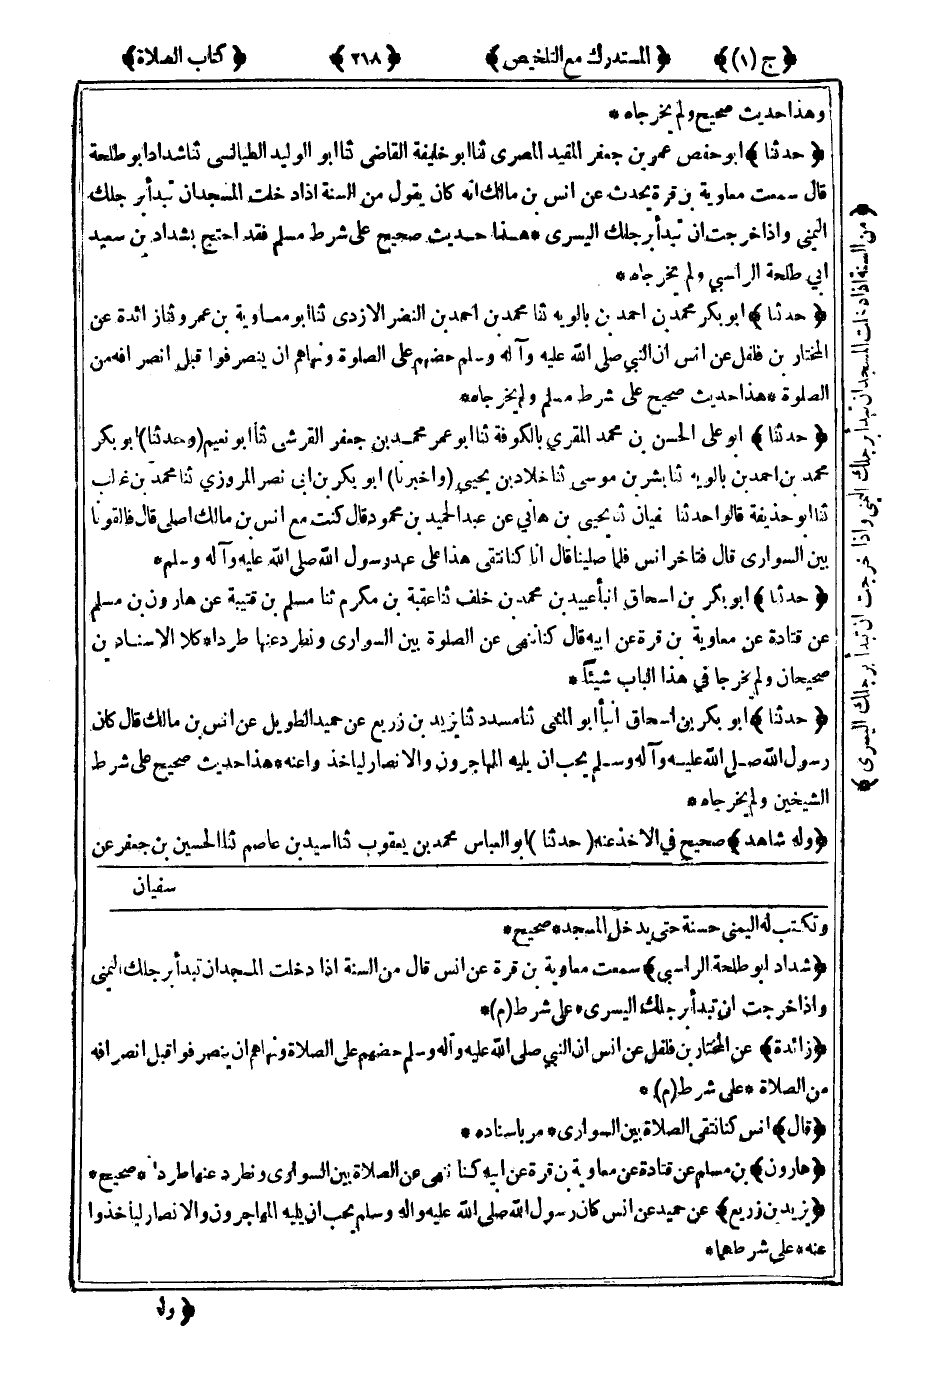 ﴿ ج (١) ﴾ ﴿ المستدرك مع التلخيص ﴾ ﴿ ٢١٨ ﴾ ﴿ كتاب الصلاة ﴾
وهذا حديث صحيح ولم يخرجاه *
﴿ حدثنا ﴾ ابو حفص عمر بن جعفر المفيد المصرى ثنا ابو خليفة القاضى ثنا ابو الوليد الطيالسى ثنا شداد ابو طلحة
قال سمعت معاوية بن قرة يحدث عن انس بن مالك انه كان يقول من السنة اذا دخلت المسجد ان تبدأ برجلك
اليمنى واذا خرجت ان تبدأ برجلك اليسرى * هذا حديث صحيح على شرط مسلم فقد احتج بشداد بن سعيد
ابي طلحة الراسبي ولم يخرجاه *
﴿ حدثنا ﴾ ابو بكر محمد بن احمد بن بالويه ثنا محمد بن احمد بن النضر الازدى ثنا ابو معاوية بن عمرو ثنا زائدة عن
المختار بن فلفل عن انس ان النبي صلى الله عليه وآله وسلم حضهم على الصلوة ونهاهم ان ينصرفوا قبل انصرافه من
الصلوة * هذا حديث صحيح على شرط مسلم ولم يخرجاه *
﴿ حدثنا ﴾ ابو على الحسن بن محمد المقري بالكوفة ثنا ابو عمر محمد بن جعفر القرشى ثنا ابو نعيم (وحدثنا) ابو بكر
محمد بن احمد بن بالويه ثنا بشر بن موسى ثنا خلاد بن يحيي (واخبرنا) ابو بكر بن ابى نصر المروزي ثنا محمد بن غالب
ثنا ابو حذيفة قالوا حدثنا سفيان ثنا يحيى بن هاني عن عبد الحميد بن محمود قال كنت مع انس بن مالك اصلى قال فالقونا
بين السوارى قال فتاخر انس فلما صلينا قال انا كنا نتقى هذا على عهد رسول الله صلى الله عليه وآله وسلم *
﴿ حدثنا ﴾ ابو بكر بن اسحاق انبأ عبيد بن محمد بن خلف ثنا عقبة بن مكرم ثنا مسلم بن قتيبة عن هارون بن مسلم
عن قتادة عن معاوية بن قرة عن ابيه قال كنا ننهى عن الصلوة بين السوارى ونطرد عنها طردا * كلا الاسنادين
صحيحان ولم يخرجا في هذا الباب شيئا *
﴿ حدثنا ﴾ ابو بكر بن اسحاق انبأ ابو المثنى ثنا مسدد ثنا يزيد بن زريع عن حميد الطويل عن انس بن مالك قال كان
رسول الله صلى الله عليه وآله وسلم يحب ان يليه المهاجرون والانصار لياخذوا عنه * هذا حديث صحيح على شرط
الشيخين ولم يخرجاه *
﴿ وله شاهد ﴾ صحيح في الاخذ عنه ( حدثنا ) ابو العباس محمد بن يعقوب ثنا اسيد بن عاصم ثنا الحسين بن جعفر عن
سفيان
وتكتب له اليمنى حسنة حتى يدخل المسجد * صحيح *
﴿ شداد ابو طلحة الراسبي ﴾ سمعت معاوية بن قرة عن انس قال من السنة اذا دخلت المسجد ان تبدأ برجلك اليمنى
واذا خرجت ان تبدأ برجلك اليسرى * على شرط (م) *
﴿ زائدة ﴾ عن المختار بن فلفل عن انس ان النبي صلى الله عليه وآله وسلم حضهم على الصلاة ونهاهم ان ينصرفوا قبل انصرافه
من الصلاة * على شرط (م) *
﴿ قال ﴾ انس كنا نتقى الصلاة بين السوارى * مر باسناده *
﴿ هارون ﴾ بن مسلم عن قتادة عن معاوية بن قرة عن ابيه كنا ننهى عن الصلاة بين السوارى ونطرد عنها طردا * صحيح *
﴿ يزيد بن زريع ﴾ عن حميد عن انس كان رسول الله صلى الله عليه واله وسلم يحب ان يليه المهاجرون والانصار لياخذوا
عنه * على شرطهما *
﴿ وله
﴿ من السنة اذا دخلت المسجد ان تبدأ برجلك اليمنى واذا خرجت ان تبدأ برجلك اليسرى ﴾